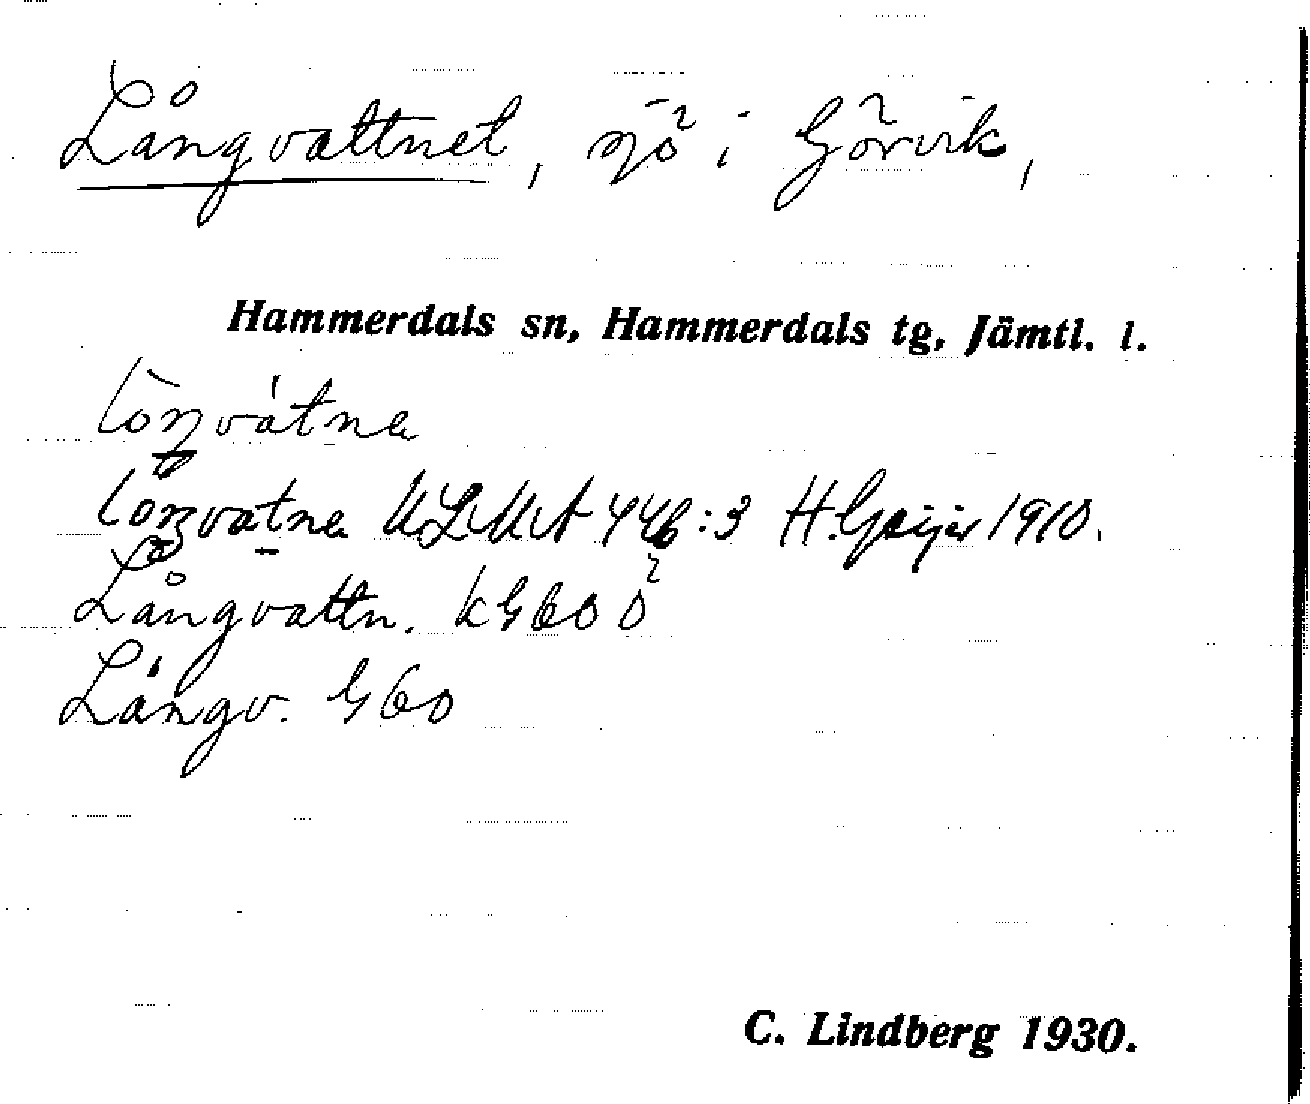 Långvattnet, sjö i Görvik,
Hammerdals sn, Hammerdals tg, Jämtl. l.
ULMA 446:3 H. Geijer 1910.
Långvattn. kG60 ö
Långv. G60
C. Lindberg 1930.